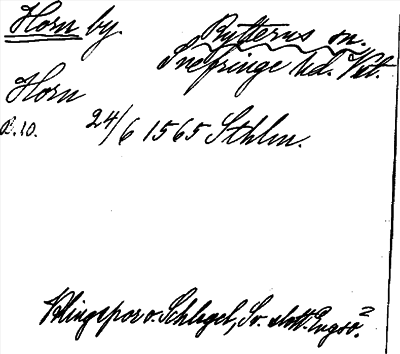 Horn by. Rytterns sn.
Snefringe hd. Vstl.
Horn
R.10. 24/6 1565 Sthlm.
Klingspor o. Schlegel, Sv. slott. Engsö.